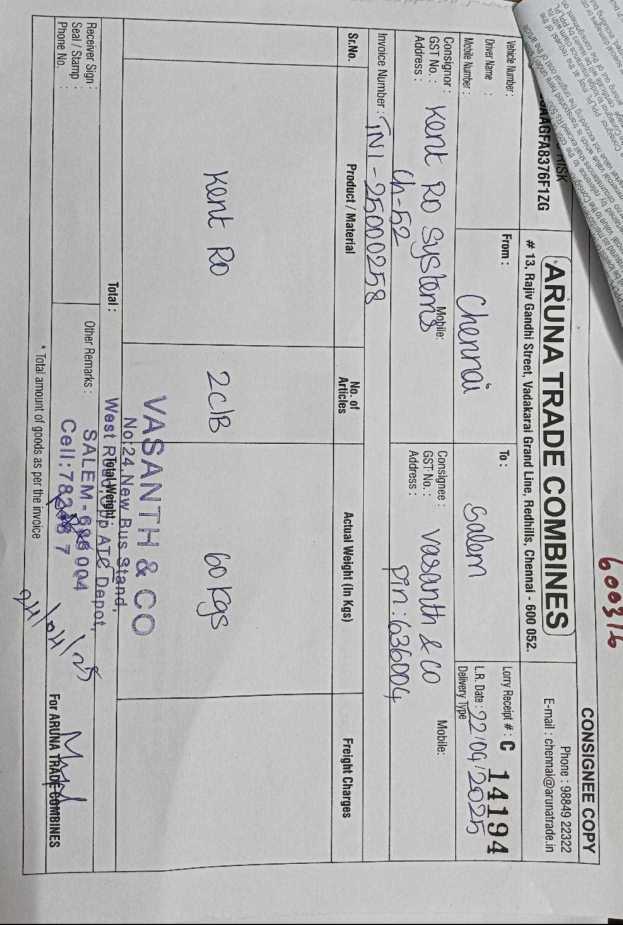 600316
CONSIGNEE COPY
RISK
AAGFA8376F1ZG
ARUNA TRADE COMBINES
Phone : 98849 22322
# 13, Rajiv Gandhi Street, Vadakarai Grand Line, Redhills, Chennai - 600 052.
E-mail : chennai@arunatrade.in
Vehicle Number :
From :
To :
Lorry Receipt # : C 14194
Driver Name :
Chennai
Salem
L.R. Date : 22/04/2025
Mobile Number :
Delivery Type
Consignor : Kent RO Systems
Mobile:
GST No. :
Address : Ch-52
Consignee : Vasanth & CO
Mobile:
GST No. :
Address : Pin: 636004
Invoice Number : TN1-25000258
Sr.No.
Product / Material
No. of Articles
Actual Weight (In Kgs)
Freight Charges
Kent RO
2C/B
60 Kgs
VASANTH & CO
No:24, New Bus Stand,
West Road, Opp ATC Depot,
SALEM - 636 004
Cell: 7
Total :
Total Weight
Receiver Sign :
Seal / Stamp :
Phone No. :
Other Remarks :
24/04/25
For ARUNA TRADE COMBINES
* Total amount of goods as per the invoice